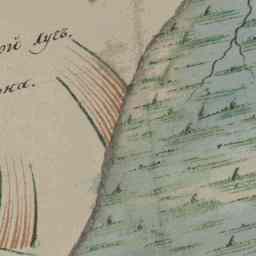 ой лугъ.
ка.